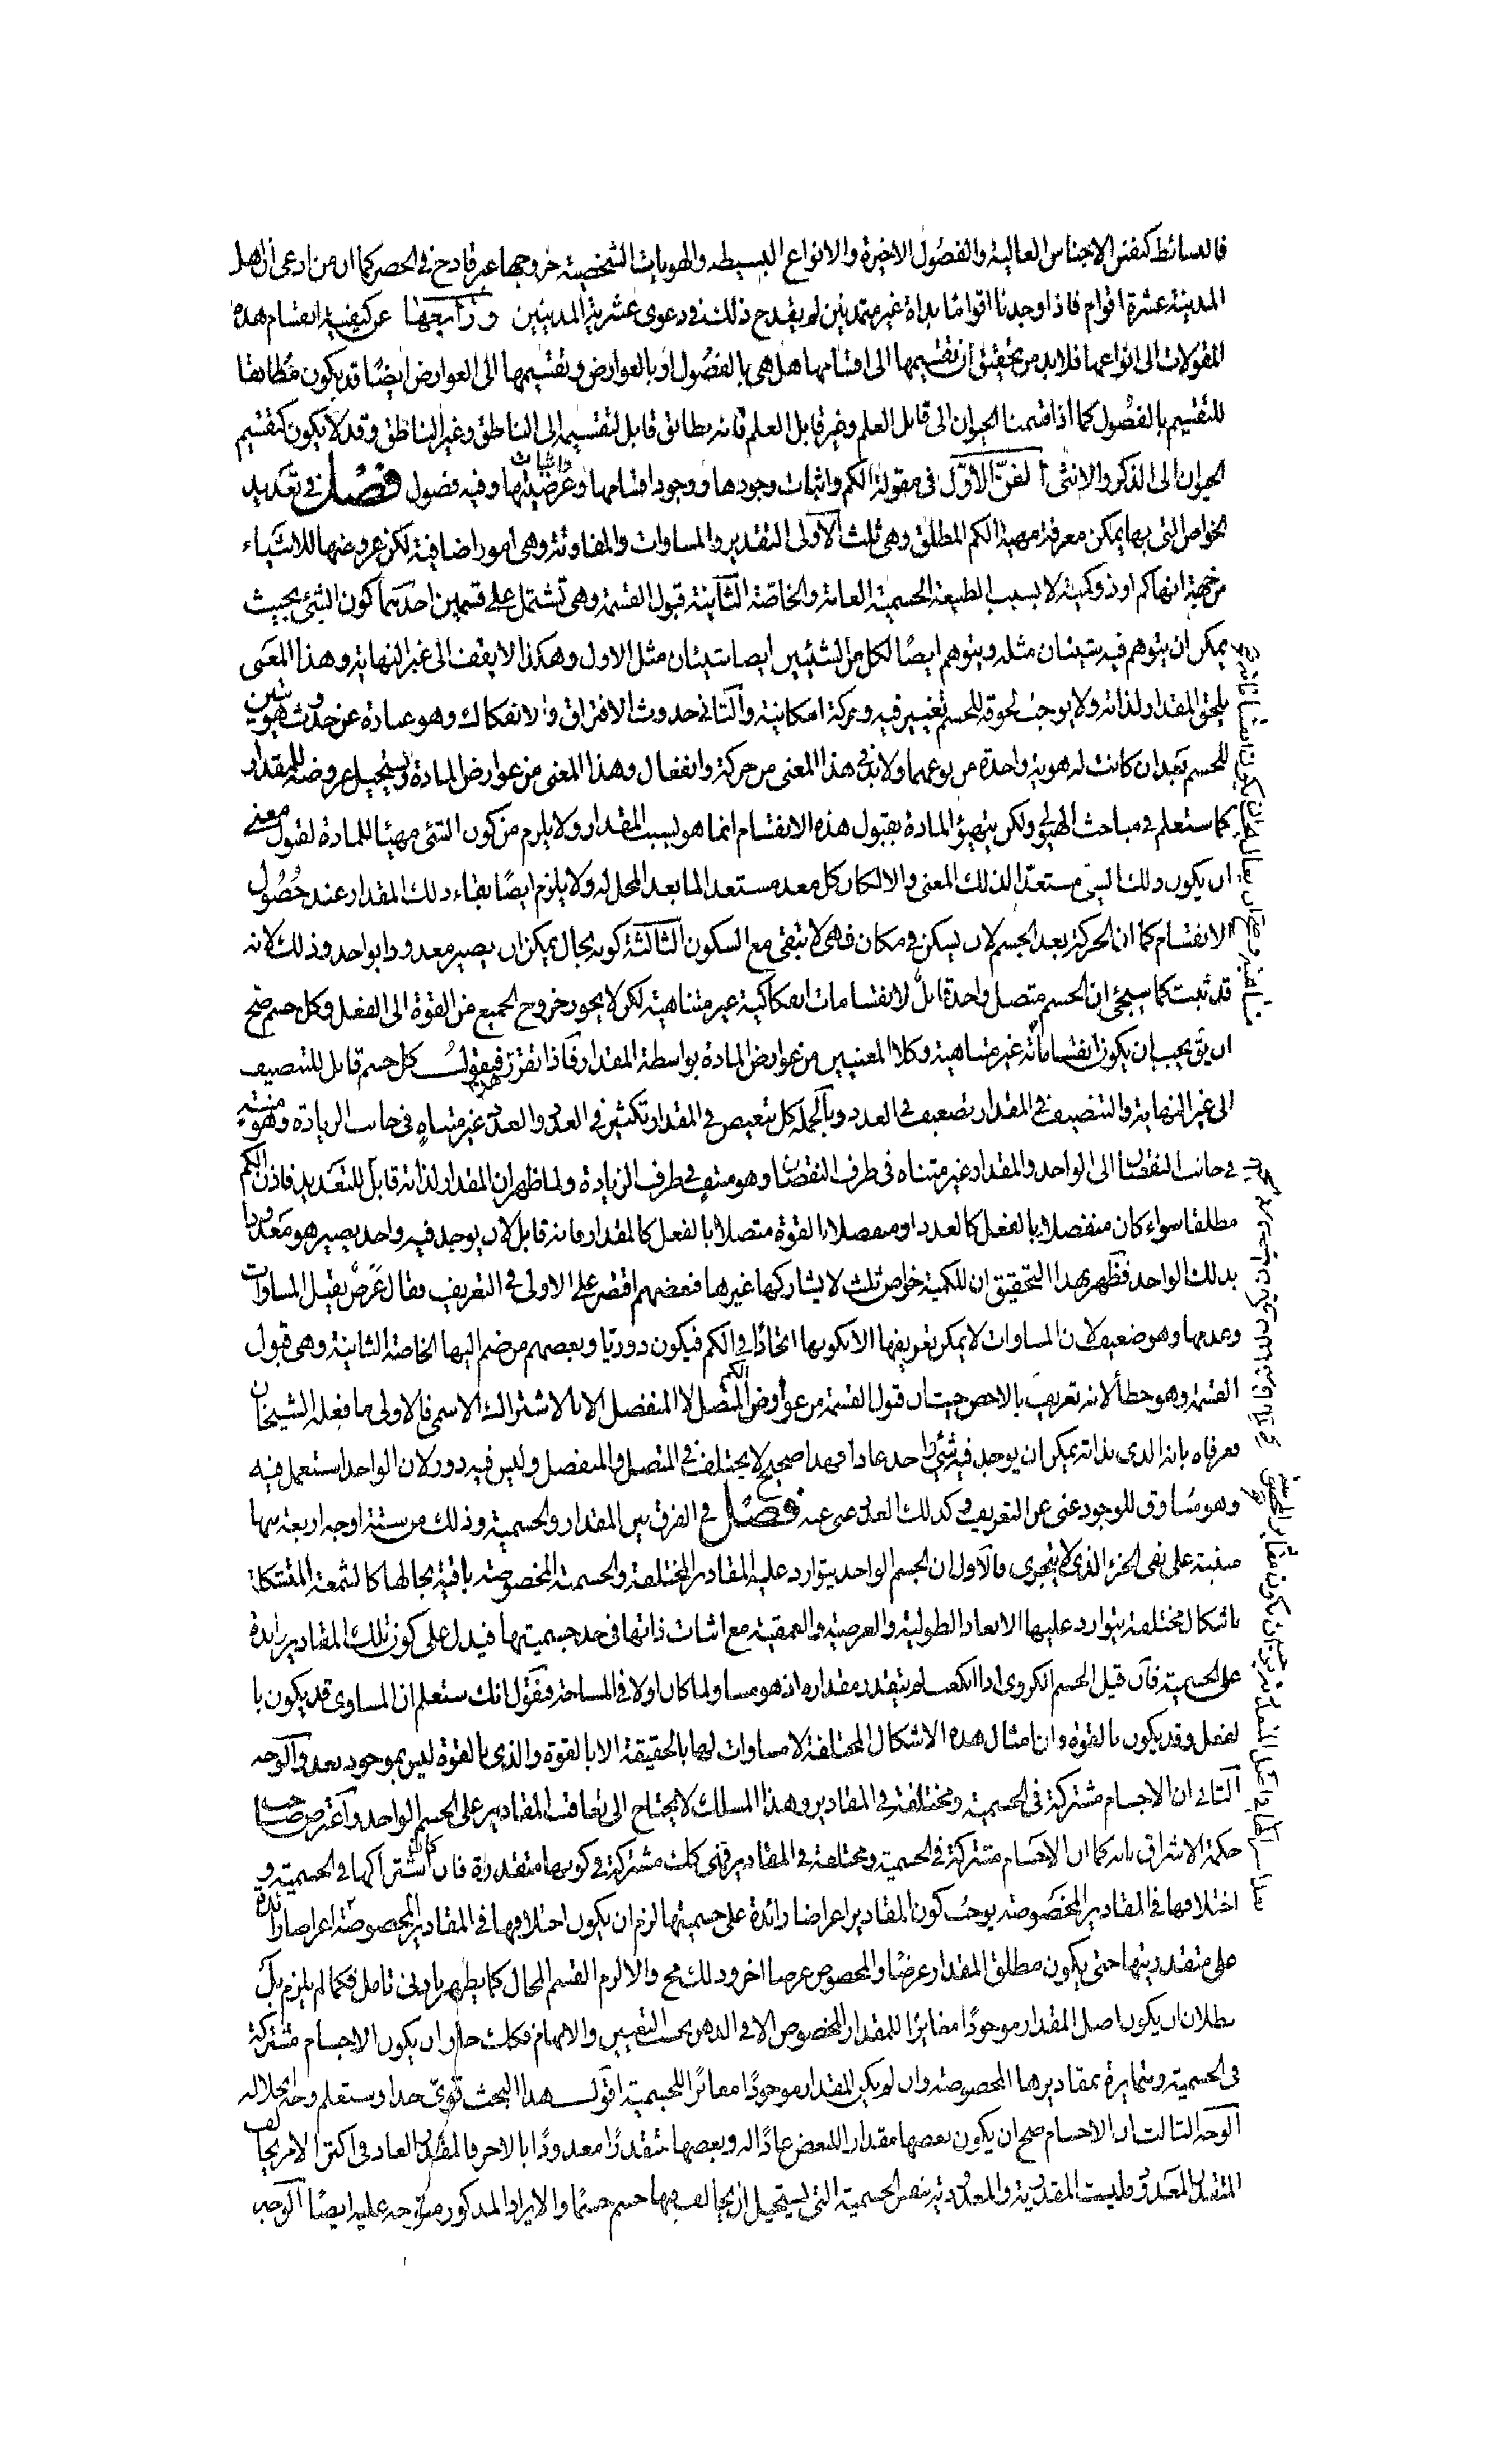 فالبسائط كنفس الاجناس العالية والفصول الاخيرة والانواع البسيطه والهويات الشخصية خروجها غير قادح في الحصر كما ان من ادعى ان اهل
المدينة عشرة اقوام فاذا وجدنا اقواما بداة غير متمدنين لم يقدح ذلك في دعوى عشرية المدنيين ورابعها عن كيفية انقسام هذه
المقولات الى انواعها فلا بد من تحقيق ان تقسيمها الى اقسامها هل هي بالفصول او بالعوارض وتقسيمها الى العوارض ايضا قد يكون مطابقا
للتقسيم بالفصول كما اذا قسمنا الحيوان الى قابل العلم وغير قابل العلم فانه يطابق قابل لتقسيمه الى الناطق وغير الناطق وقد لا يكون كتقسيم
الحيوان الى الذكر والانثى الفن الاول في مقولة الكم واثبات وجودها ووجود اقسامها واثبات عرضيتها وفيه فصول فصل في تعديد
الخواص التي بها يمكن معرفة مهية الكم المطلق وهي ثلث الاولى التقدير والمساوات والمفاوتة وهي امور اضافية لكن عروضها للاشياء
من جهة انها كم او ذو كمية لا بسبب الطبيعة الجسمية العامة والخاصة الثانية قبول القسمة وهي تشتمل على قسمين احدهما كون الشئ بحيث
يمكن ان يتوهم فيه شيئان مثله ويتوهم ايضا لكل من الشيئين ايضا شيئان مثل الاول وهكذا لا يقف الى غير النهاية وهذا المعنى
يلحق المقدار لذاته ولا يوجب لحوقه للجسم تغيير فيه وحركة امكانية والثاني حدوث الافتراق والانفكاك وهو عبارة عن حدوث هويتين
للجسم بعد ان كانت له هوية واحدة من نوعهما ولا بد في هذا المعنى من حركة وانفعال وهذا المعنى من عوارض المادة ويستحيل عروضه للمقدار
كما ستعلم في مباحث الهيولى ولكن يتهيؤ المادة بقبول هذه الانقسام انما هو بسبب المقدار ولا يلزم من كون الشئ مهيئا للمادة لقبول معنى
ان يكون ذلك الشئ مستعدا لذلك المعنى والا لكان كل معد مستعدا لما يعد المحل له ولا يلزم ايضا بقاء ذلك المقدار عند حصول
الانقسام كما ان الحركة يعد الجسم لان يسكن في مكان فهي لا تبقى مع السكون الثالثة كونه بحال يمكن ان يصير معدودا بواحد وذلك لانه
قد ثبت كما سيجئ ان الجسم متصل واحد قابل لانقسامات انفكاكية غير متناهية لكن لا يجوز خروج الجميع من القوة الى الفعل وكل جسم صح
ان يق يجب ان يكون انقساماته غير متناهية وكلا المعنيين من عوارض المادة بواسطة المقدار فاذا تقرر فيقول كل جسم قابل للتنصيف
الى غير النهاية والتنصيف في المقدار تضعيف في العدد وبالجملة كل تبعيض في المقدار تكثير في العدد والعدد غير متناه في جانب الزيادة وهو منته
في جانب النقصان الى الواحد والمقدار غير متناه في طرف النقصان وهو منته في طرف الزيادة ولما ظهر ان المقدار لذاته قابل للتعديد فاذن الكم
مطلقا سواء كان منفصلا بالفعل كالعدد او منفصلا بالقوة متصلا بالفعل كالمقدار فانه قابل لان يوجد فيه واحد يصير هو معدودا
بذلك الواحد فظهر بهذا التحقيق ان للكمية خواص ثلث لا يشاركها غيرها فبعضهم اقتصر على الاولى في التعريف فقال عرض يقبل المساوات
وعدمها وهو ضعيف لان المساوات لا يمكن تعريفها الا بكونها اتحادا في الكم فيكون دوريا وبعضهم من ضم اليها الخاصة الثانية وهي قبول
القسمة وهو خطأ لانه تعريف بالاخص حيث ان قبول القسمة من عوارض الكم المتصل لا المنفصل الا بالاشتراك الاسمي فالاولى ما فعله الشيخان
فعرفاه بانه الذي بذاته يمكن ان يوجد فيه شئ واحد عادا فهذا صحيح لا يختلف في المتصل والمنفصل وليس فيه دور لان الواحد استعمل فيه
وهو مساوق للوجود غنى عن التعريف وكذلك العدد غنى عنه فصل في الفرق بين المقدار والجسمية وذلك من ستة اوجه اربعة منها
مبنية على نفى الجزء الذي لا يتجزى فالاول ان الجسم الواحد يتوارد عليه المقادير المختلفة والجسمية المخصوصة باقية بحالها كالشمعة المتشكلة
باشكال مختلفة يتوارد عليها الابعاد الطولية والعرضية والعمقية مع اثبات ذاتها في حد جسميتها فيدل على كون تلك المقادير زايدة
على الجسمية فان قيل الجسم الكروى اذا انكعب لم يتقدر مقداره اذ هو مساو لما كان اولا في المساحة فنقول انك ستعلم ان المساوى قد يكون با
لفعل وقد يكون بالقوة وان امثال هذه الاشكال المختلفة لا مساوات لها بالحقيقة الا بالقوة والذي بالقوة ليس بموجود بعد والوجه
الثاني ان الاجسام مشتركة في الجسمية ومختلفة في المقادير وهذا المسلك لا يحتاج الى تعاقب المقادير على الجسم الواحد واعترض صاحب
حكمة الاشراق بانه كما ان الاجسام مشتركة في الجسمية ومختلفة في المقادير فهى كك مشتركة في كونها متقدرة فان كان اشتراكها في الجسمية و
اختلافها في المقادير المخصوصة يوجب كون المقادير اعراضا زائدة على جسميتها لزم ان يكون اختلافها في المقادير المخصوصة اعراضا زائدة
على متقدريتها حتى يكون مطلق المقدار عرضا والمخصوص عرضا اخر وذلك مح والا لزم القسم المحال كما يظهر بادنى تامل فكما لم يلزم بل
بطلان ان يكون اصل المقدار موجودا مغايرا للمقدار المخصوص الا في الذهن بحسب التعيين والابهام فكك جاز ان يكون الاجسام مشتركة
في الجسمية ومتمايزة بمقاديرها المخصوصة وان لم يكن المقدار موجودا مغائرا للجسمية اقول هذا البحث قوى جدا وستعلم وجه انحلاله
الوجه الثالث ان الاجسام صح ان يكون بعضها مقدار اللبعض عادا له وبعضها متقدرا معدودا بالاخر فالمقدار العاد في اكثر الامر يخالف
المتقدر المعدود وليست المقدرية والمعدودية بنفس الجسمية التي يستحيل ان يخالف فيها جسم جسما والايراد المذكور متوجه عليه ايضا الوجه